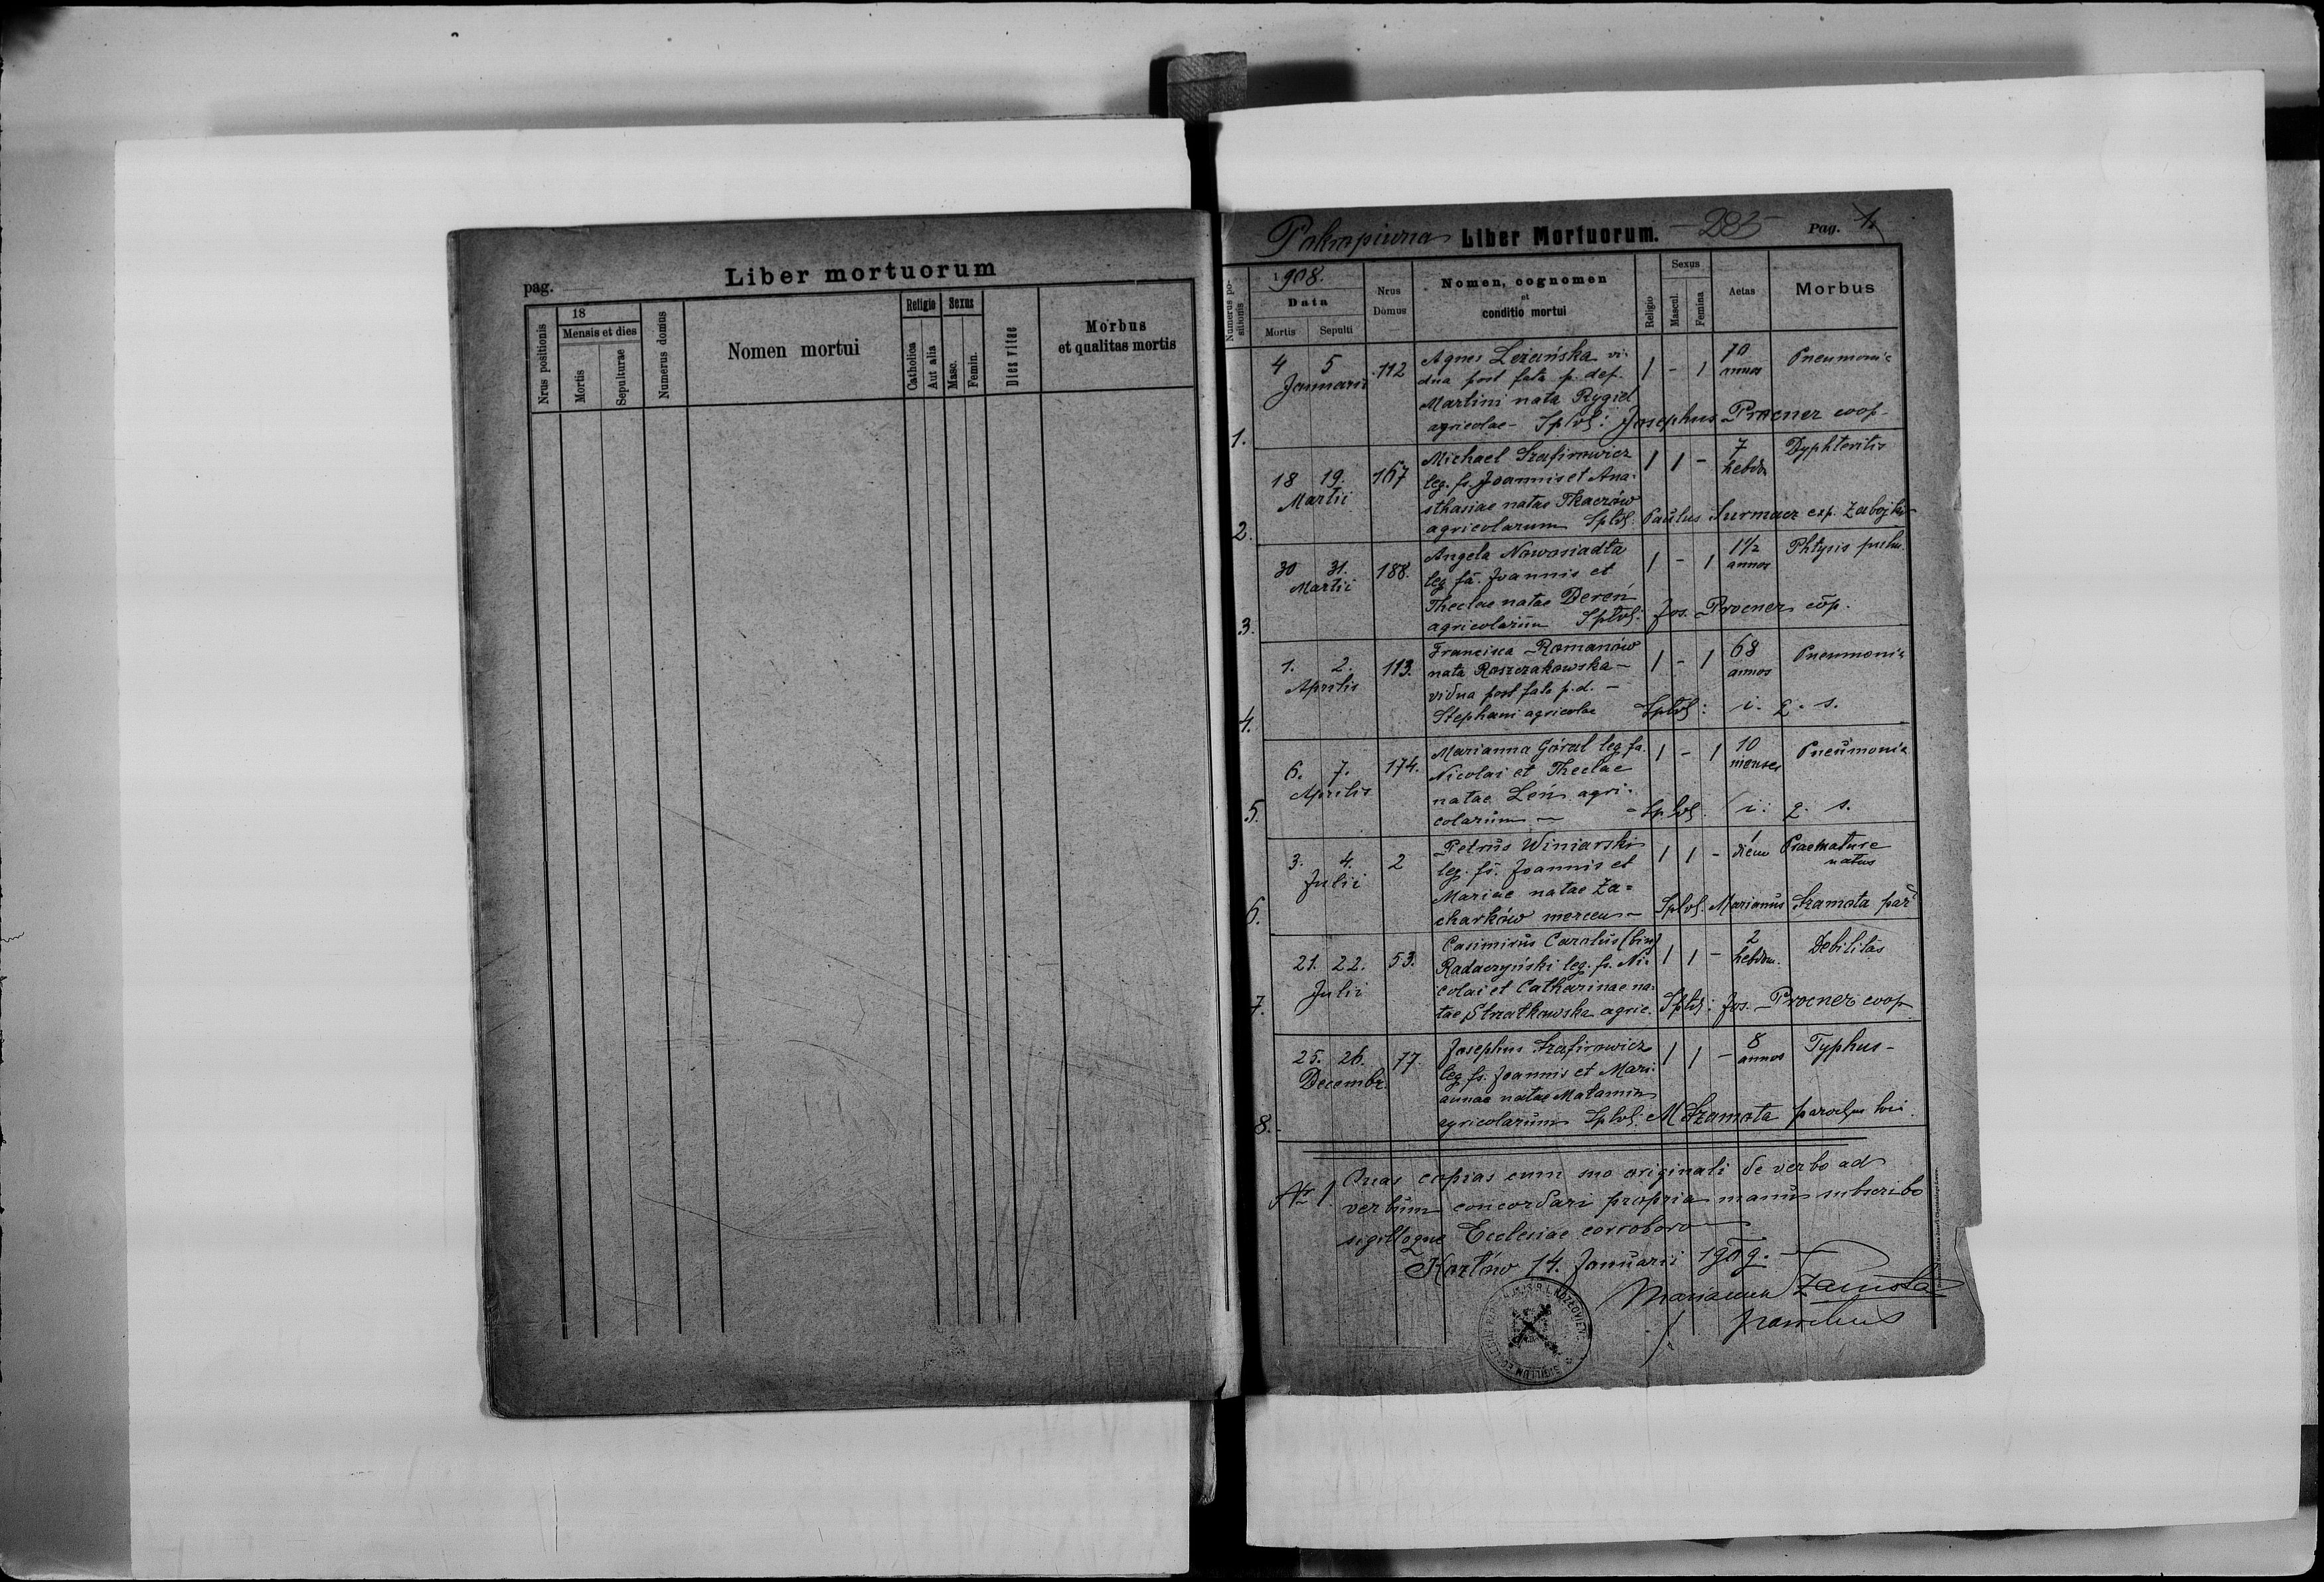 Liber mortuorum
pag.
Nrus positionis
18
Mensis et dies
Mortis
Sepulturae
Numerus domus
Nomen mortui
Religio
Catholica
Aut alia
Sexus
Masc.
Femin.
Dies vitae
Morbus
et qualitas mortis
Pokropiwna Liber Mortuorum. - 285 Pag. 1.
Numerus po-
sitionis
1908.
Data
Mortis Sepulti
Nrus
Domus
Nomen, cognomen
et
conditio mortui
Religio
Sexus
Mascul.
Femina
Aetas
Morbus
1.
4 5
Januarii
112
Agnes Leżańska vi-
dua post fata p. def.
Martini nata Rygiel
agricolae - Splvf: Josephus Procner coop-
1 - 1
70
annos
Pneumonia
2.
18 19.
Martii
167
Michael Szafirowicz
leg. fs. Joannis et Ana-
sthasiae natae Tkaczów
agricolarum Splvf. Paulus Surmacz exp. Zabojki-
1 1 -
7
hebdo.
Dyphteritis
3.
30 31.
Martii
188.
Angela Nowosiadła
leg. fa. Joannis et
Theclae natae Dereń
agricolarum Splvf. Jos. Procner cop.
1 - 1
1 1/2
annos
Phtysis pulm.
4.
1. 2.
Aprilis
113.
Francisca Romanów
nata Roszczakowska -
vidua post fata p. d. -
Stephani agricolae Splvf: i. q. s.
1 - 1
68
annos
Pneumonia
5.
6. 7.
Aprilis
174.
Marianna Góral leg. fa.
Nicolai et Theclae
natae Leń agri-
colarum - - Splvf. i. q. s.
1 - 1
10
menses
Pneumonia
6.
3. 4.
Julii
2
Petrus Winiarski
leg. fs. Joannis et
Mariae natae Za=
charków mercen - Splvf. Marianus Szamota par
1 1 -
1
diem
Praemature
natus
7.
21. 22.
Julii
53.
Casimirus Carolus (bin)
Radaczyński leg. fs. Ni-
colai et Catharinae na-
tae Strzałkowska agric. Splvf: Jos. Procner coop
1 1 -
2
hebdom.
Debilitas
8.
25. 26.
Decembr.
77.
Josephus Szafirowicz
leg. fs. Joannis et Mari-
annae natae Małamin
agricolarum Splvf: M Szamota parochus loci.
1 1 -
8
annos
Typhus -
Nr 1. Quas copias cum suo originali de verbo ad
verbum concordari propria manu subscribo
sigilloque Ecclesiae corroboro
Kozłów 14. Januarii 1909. -
Marianus Szamota
parochus